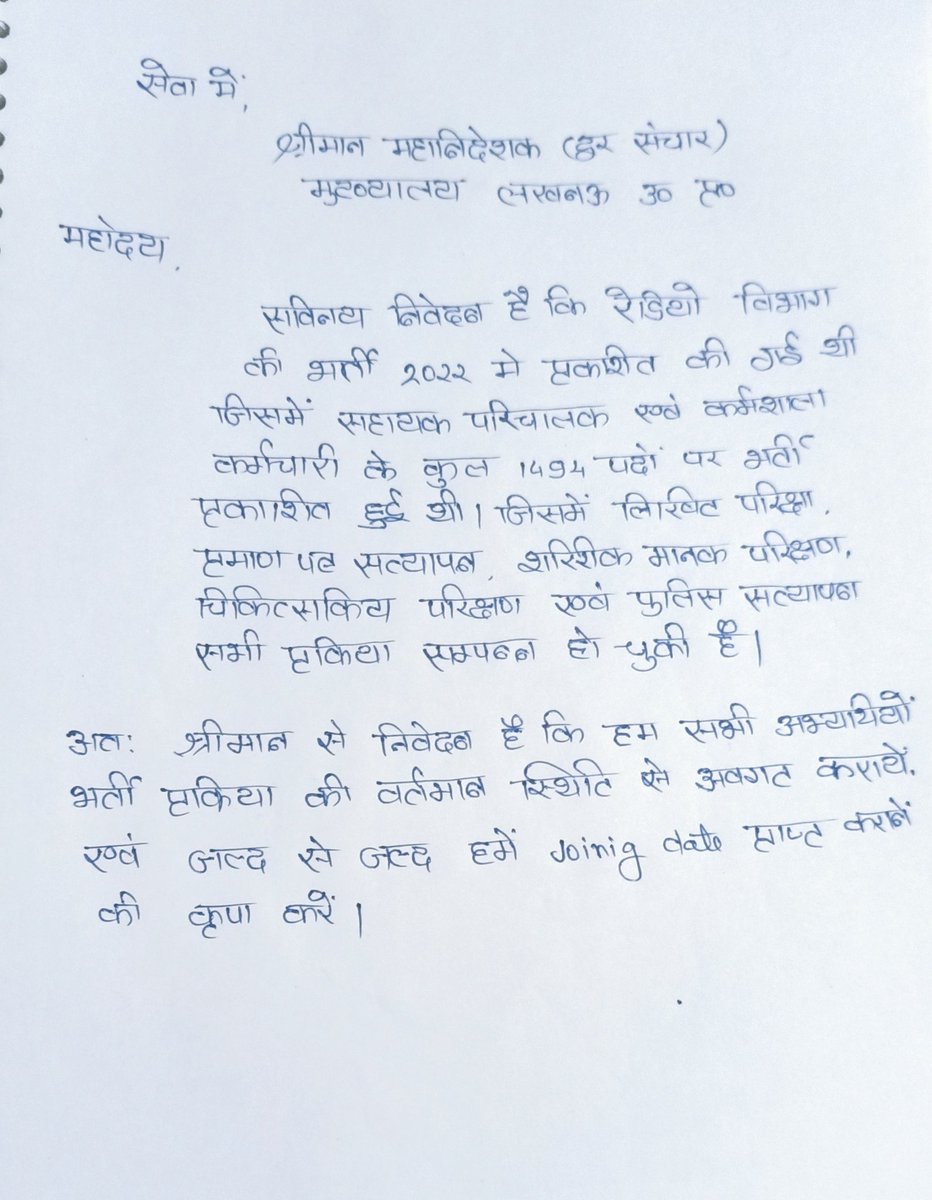 सेवा में,
श्रीमान महानिदेशक (दूर संचार)
मुख्यालय लखनऊ उ० प्र०
महोदय,
सविनय निवेदन है कि रेडियो विभाग
की भर्ती २०२२ मे प्रकाशीत की गई थी
जिसमें सहायक परिचालक एवं कर्मशाला
कर्मचारी के कुल 1494 पदों पर भर्ती
प्रकाशित हुई थी। जिसमें लिखित परिक्षा,
प्रमाण पत्र सत्यापन, शारिरीक मानक परिक्षण,
चिकित्सकिय परिक्षण एवं पुलिस सत्यापन
सभी प्रकिया सम्पन्न हो चुकी है।
अतः श्रीमान से निवेदन है कि हम सभी अभ्यर्थियों
भर्ती प्रकिया की वर्तमान स्थिति से अवगत करायें,
एवं जल्द से जल्द हमें Joinig date प्राप्त कराने
की कृपा करें।